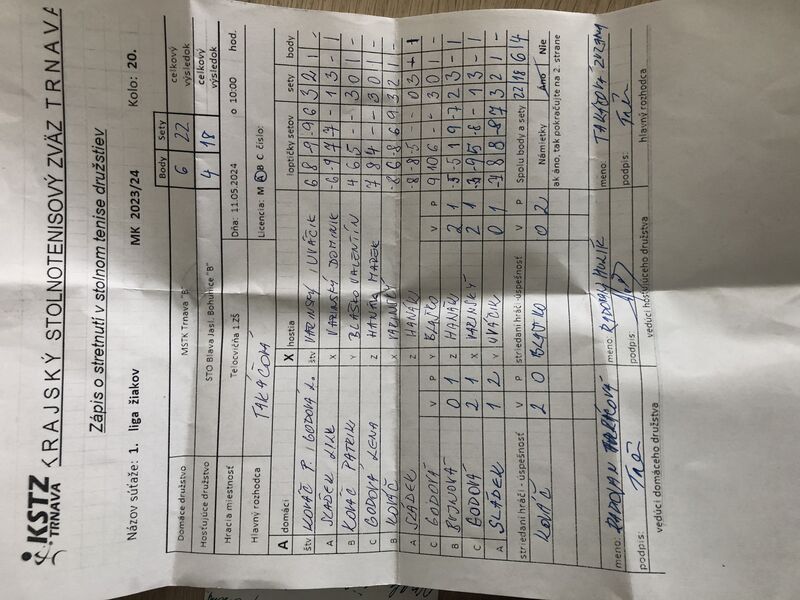 KSTZ
TRNAVA
KRAJSKÝ STOLNOTENISOVÝ ZVÄZ TRNAVA
Zápis o stretnutí v stolnom tenise družstiev
Názov súťaže: 1. liga žiakov MK 2023/24 Kolo: 20.
Body Sety
Domáce družstvo MSTK Trnava "B" 6 22 celkový výsledok
Hosťujúce družstvo STO Blava Jasl. Bohunice "B" 4 18 celkový výsledok
Hracia miestnosť Telocvičňa 1.ZŠ Dňa: 11.05.2024 o 10:00 hod.
Hlavný rozhodca TAKÁČOVÁ Licencia: M A B C číslo:
A domáci X hostia loptičky setov sety body
štv KOVÁČ P. GODOVÁ L. štv VARINSKÝ UVÁČIK 6 8 -9 -9 6 3 2 1 -
A SLÁDEK X VARINSKÝ DOMINIK -6 -9 7 -7 - 1 3 - 1
B KOVÁČ PATRIK Y BLAŠKO VALENTÍN 4 6 5 - - 3 0 1 -
C GODOVÁ LENA Z HANÁK MAREK 7 8 4 - - 3 0 1 -
B KOVÁČ X VARINSKÝ 3 2 1 -
A SLÁDEK Z HANÁK -8 -8 -5 - - 0 3 - 1
C GODOVÁ Y BLAŠKO 9 10 6 - - 3 0 1 -
V P V P
B 0 1 Z HANÁK 2 1 2 3 - 1
C GODOVÁ 2 1 X VARINSKÝ 2 1 1 3 - 1
A SLÁDEK 1 2 Y UVÁČIK 0 1 -7 8 8 -8 7 3 2 1 -
striedaní hráči - úspešnosť V P striedaní hráči - úspešnosť V P Spolu body a sety 22 18 6 4
KOVÁČ 2 0 BLAŠKO 0 2 Námietky Áno Nie
ak áno, tak pokračujte na 2. strane
meno: RADOVAN meno: meno: TAKÁČOVÁ ZUZANA
podpis: podpis: podpis:
vedúci domáceho družstva vedúci hosťujúceho družstva hlavný rozhodca